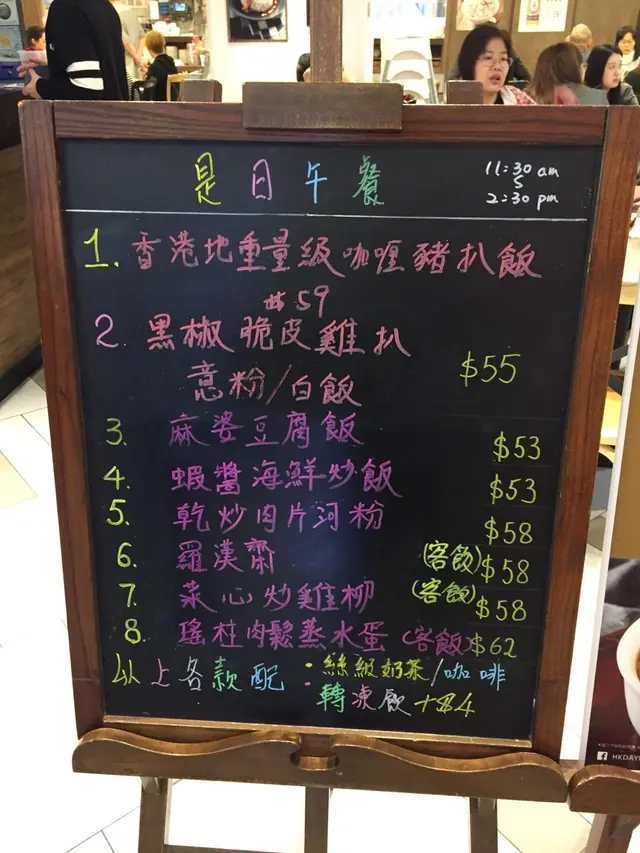 是日午餐
11:30 am
S
2:30 pm
1. 香港地重量級咖喱豬扒飯
$59
2. 黑椒脆皮雞扒
意粉/白飯 $55
3. 麻婆豆腐飯 $53
4. 蝦醬海鮮炒飯 $53
5. 乾炒肉片河粉 $58
6. 羅漢齋 (客飯) $58
7. 菜心炒雞柳 (客飯) $58
8. 瑤柱肉鬆蒸水蛋 (客飯) $62
以上各款配:絲級奶茶/咖啡
轉凍飲+$4
HKDAY